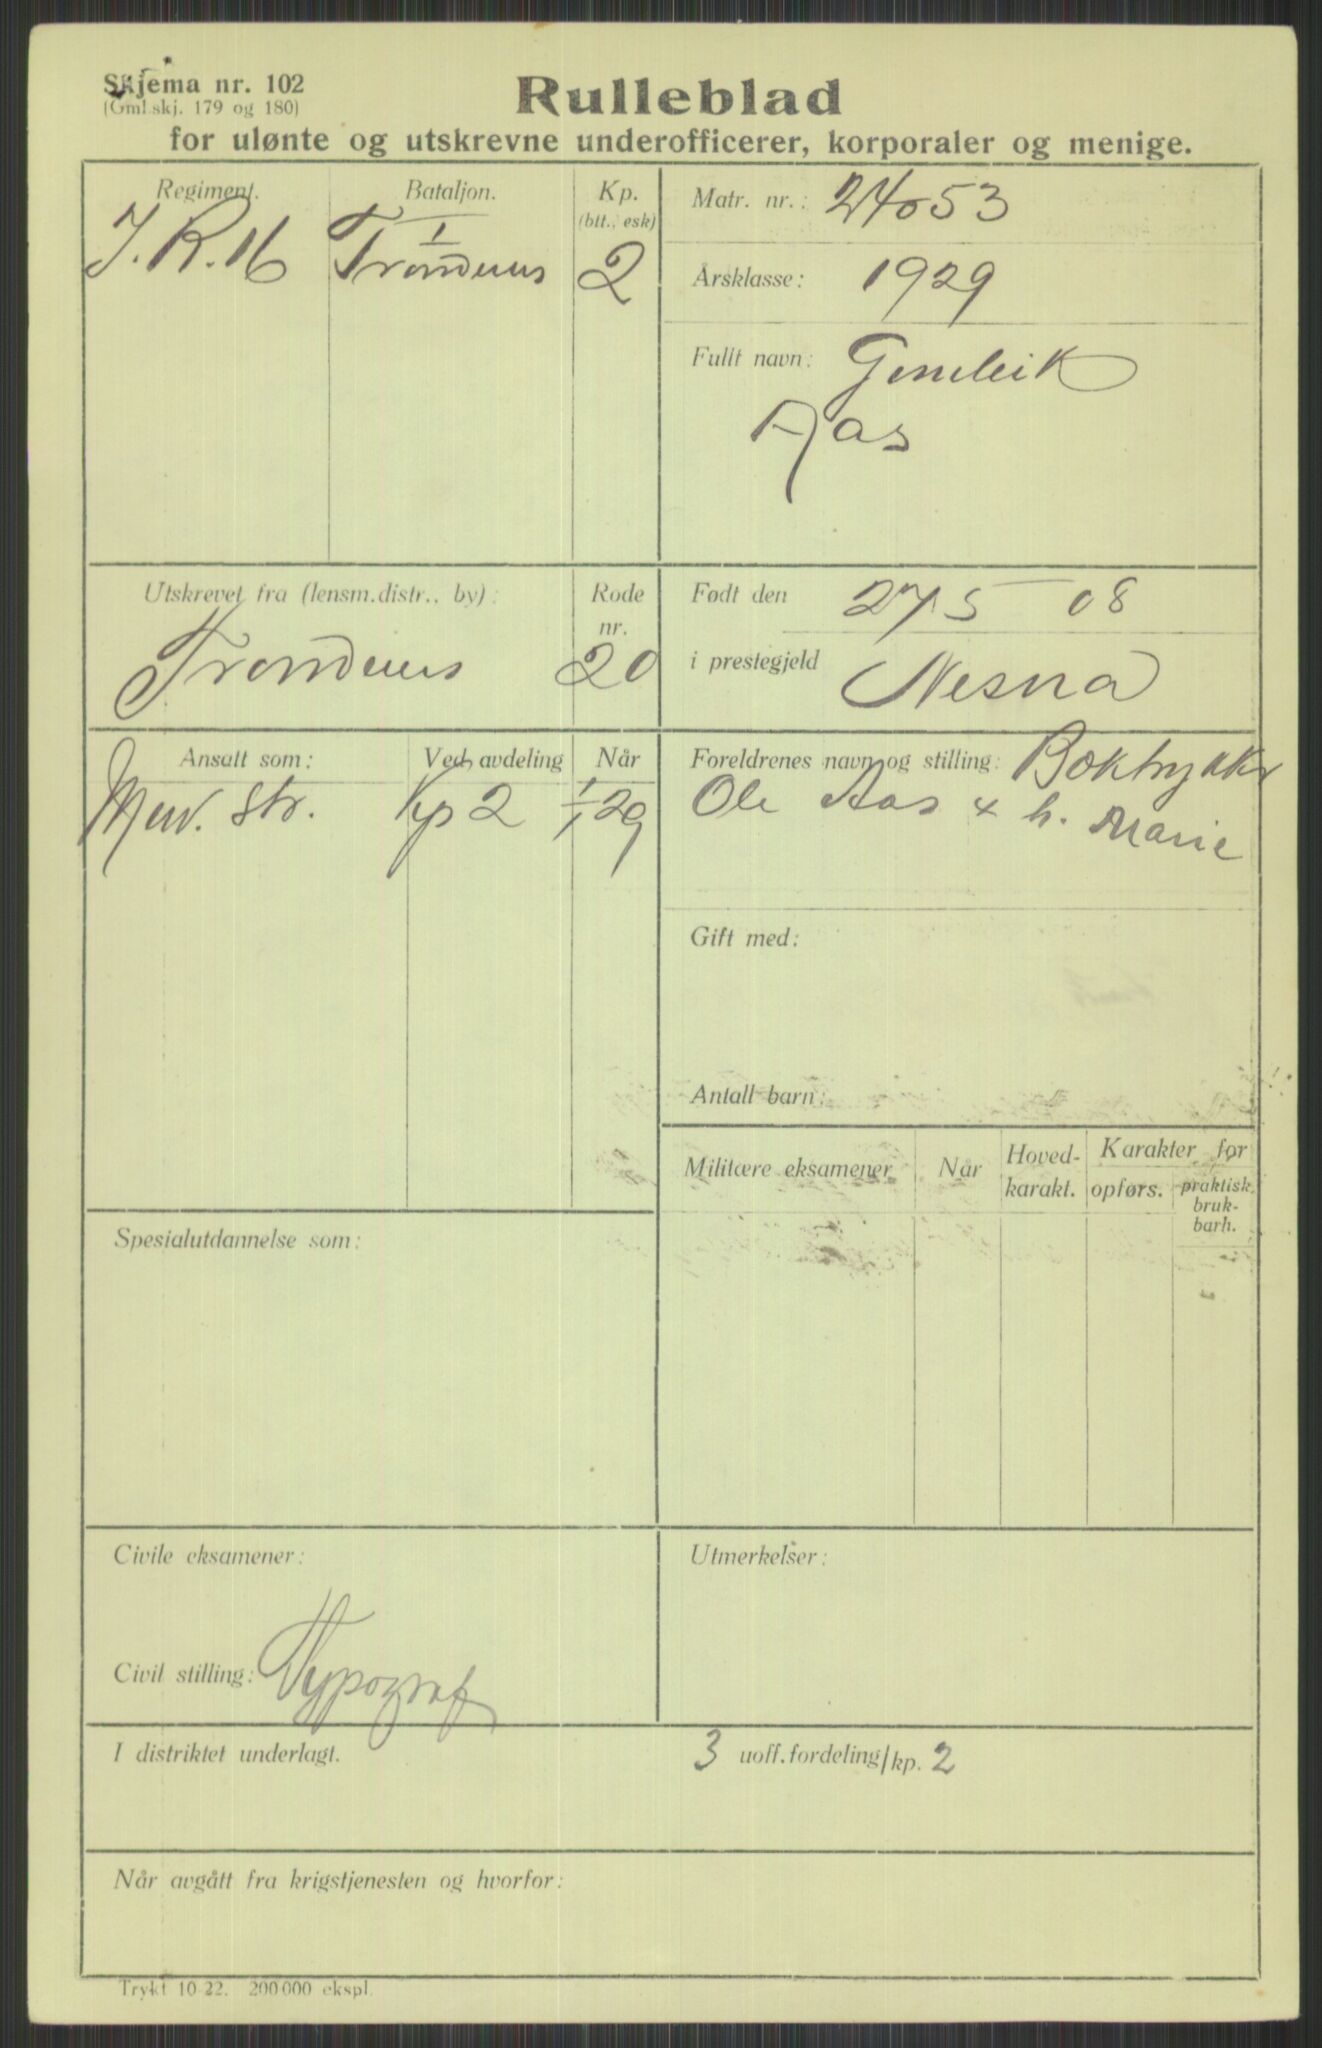 Skjema nr. 102
(Gml.skj. 179 og 180)
Rulleblad
for ulønte og utskrevne underofficerer, korporaler og menige.
Regiment. Bataljon. Kp.
(btt., esk)
J.R.16 I 2
Trondenes
Matr. nr.: 24053
Årsklasse: 1929
Fullt navn:
Aas
Utskrevet fra (lensm.distr., by): Rode
nr.
Trondenes 20
Født den 27/5 08
i prestegjeld Nesna
Ansatt som: Ved avdeling Når
Men. str. Kp 2 1/1 29
Foreldrenes navn og stilling: Boktrykker
Ole Aas & h. Marie
Gift med:
Antall barn:
Militære eksamener Når Hoved-
karakt. Karakter for
opførs. praktisk
bruk-
barh.
Spesialutdannelse som:
Civile eksamener:
Civil stilling: Typograf
Utmerkelser:
I distriktet underlagt. 3 uoff.fordeling/kp. 2
Når avgått fra krigstjenesten og hvorfor:
Trykt 10 22. 200 000 ekspl.